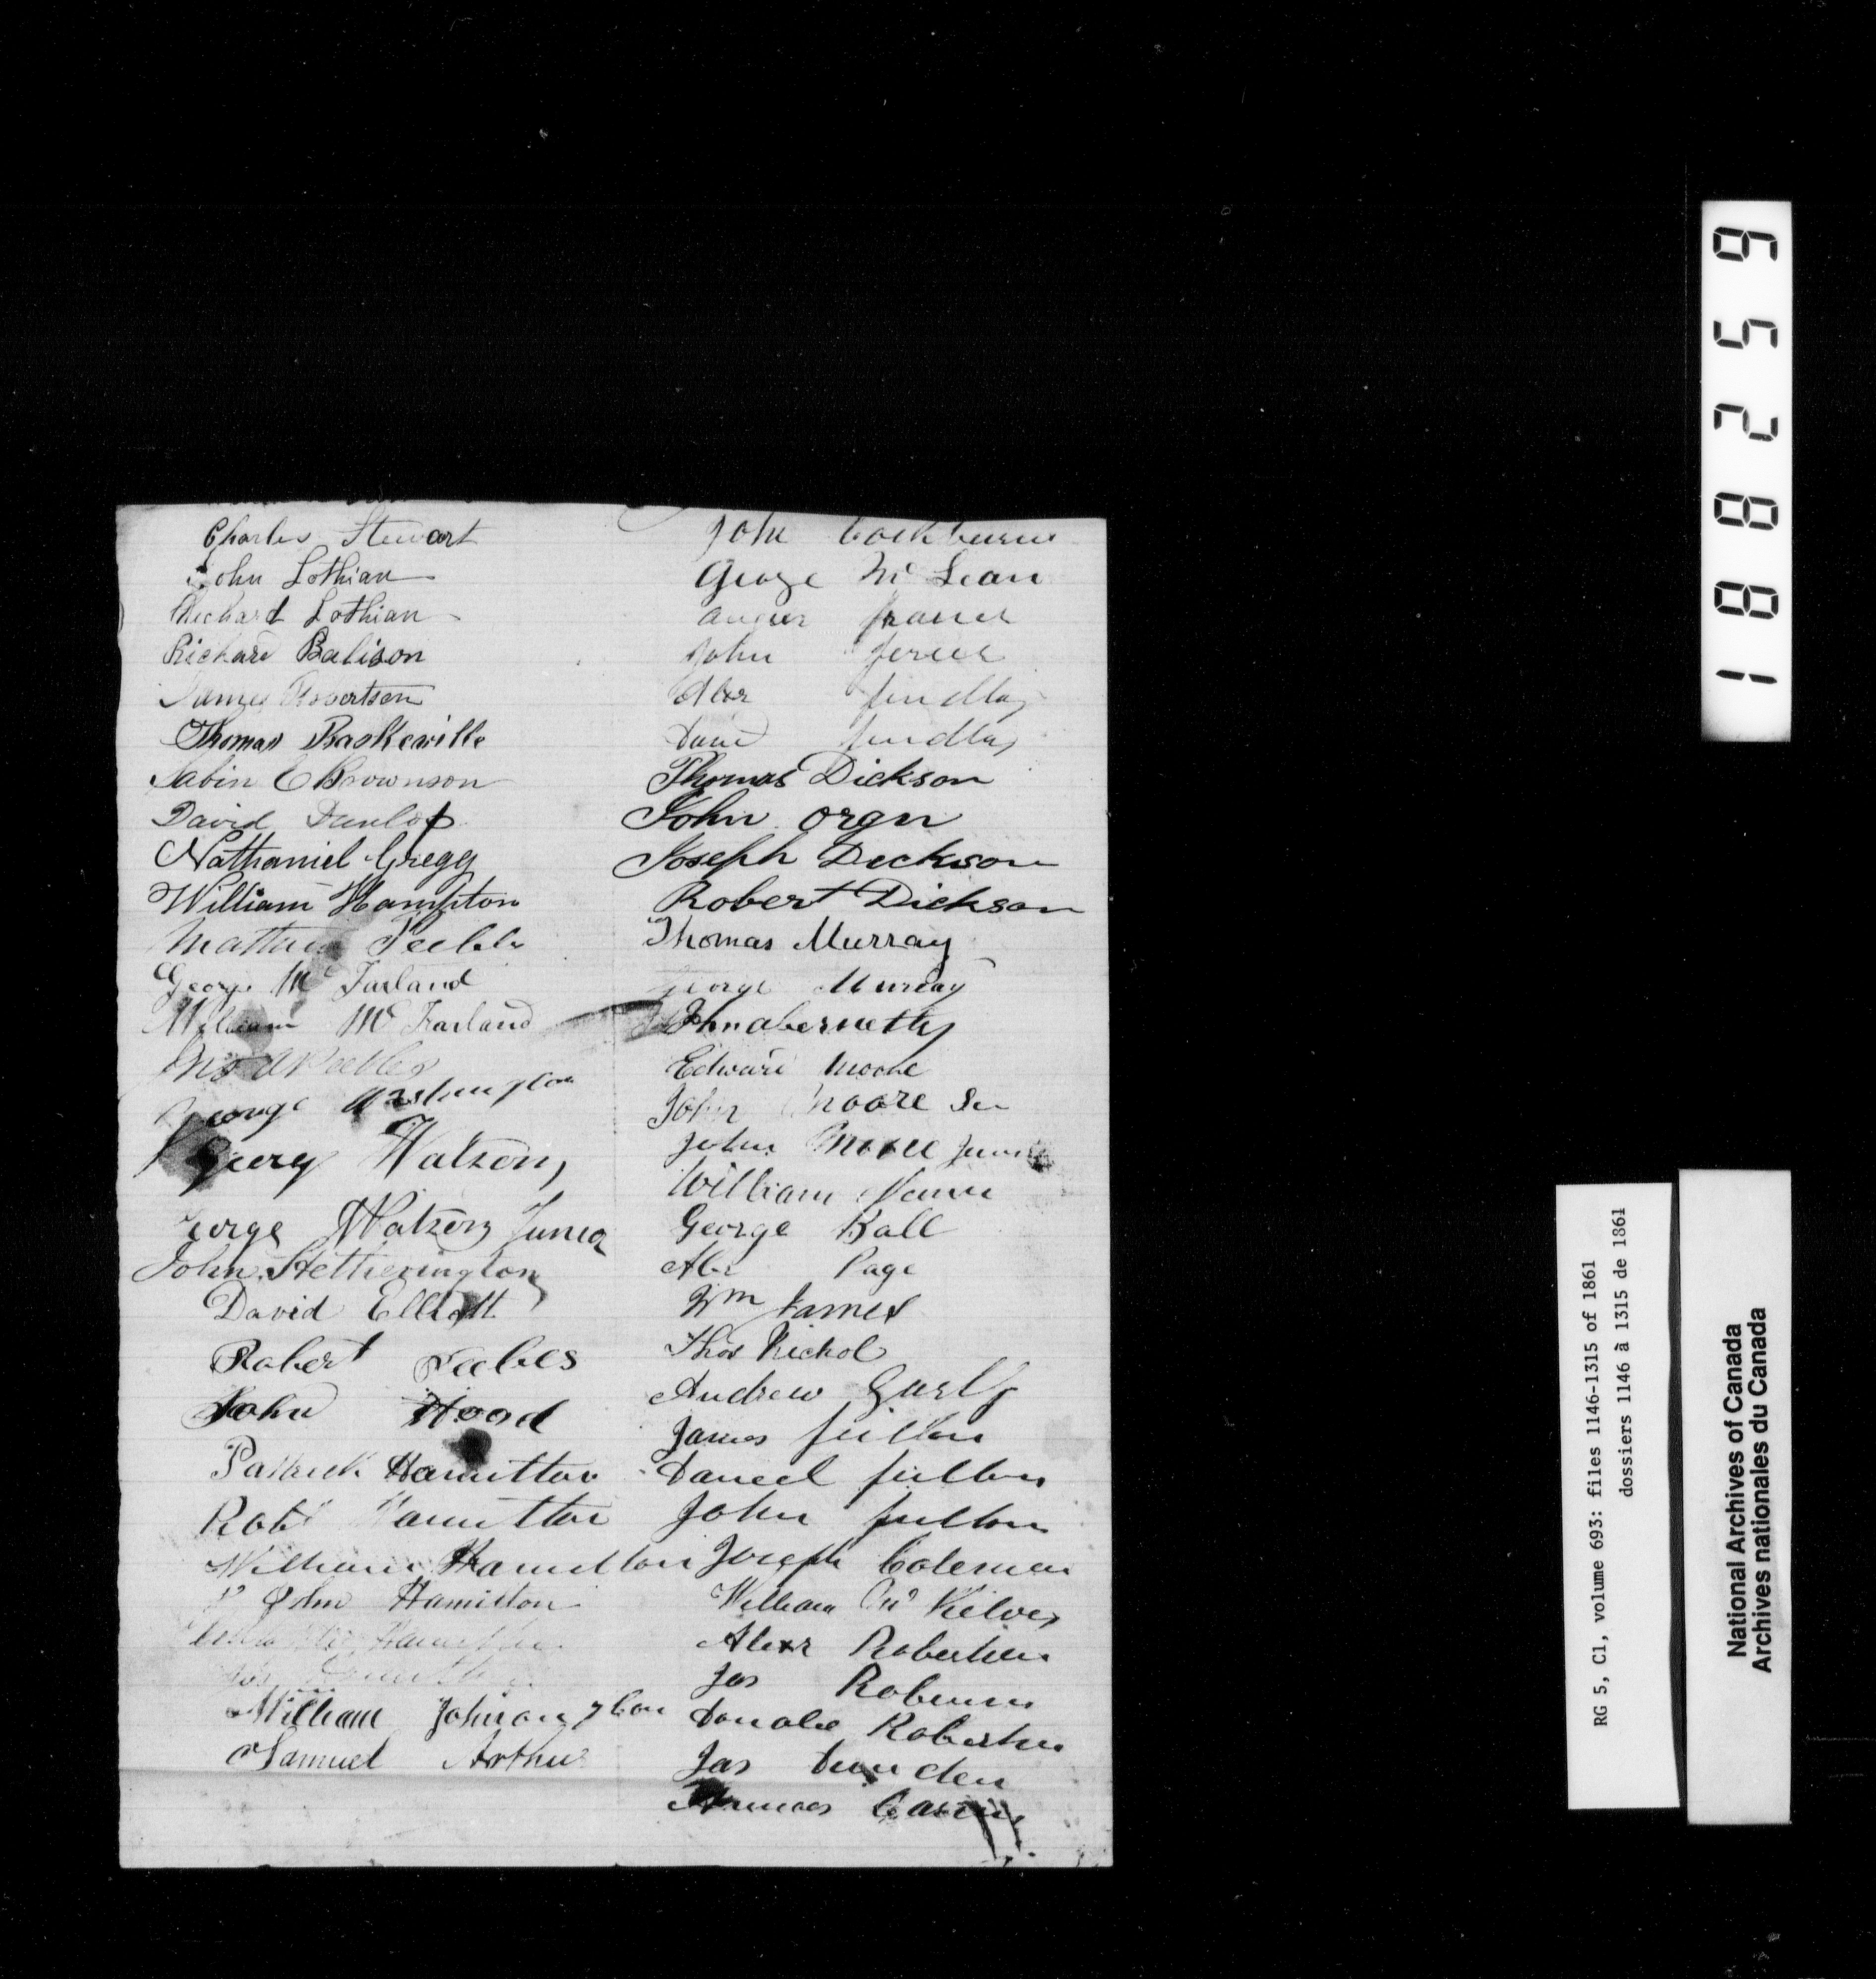 Charles Stewart
John Lothian
Richard Lothian
Richard Balison
James Robertson
Thomas Baskerville
Sabin E Brownson
David Dunlop
Nathaniel Gregg
William Hampton
Matthew Peebles
George Mc Farland
William Mc Farland
Peebles
George
George Watson
George Watson Junior
John Hetherington
David Elliott
Robert Peebles
John Hood
Patrick Hamilton
Robt Hamilton
William Hamilton
John Hamilton
Hamilton
William
Samuel Arthur
John Cockburn
George Mc Lean
Angus
John
Alex Findlay
David Findlay
Thomas Dickson
John orgn
Joseph Dickson
Robert Dickson
Thomas Murray
George Murray
John abernethy
Edward Moore
John Moore Sen
John Moore Junr
William
George Ball
Alex Page
Wm James
Thos Nichol
Andrew
James fulton
Daniel fulton
John fulton
Joseph Coleman
William Mc Kelvey
Alexr Robertson
Jas
Donald Robertson
Jas
188259
RG 5, C1, volume 693: files 1146-1315 of 1861
dossiers 1146 à 1315 de 1861
National Archives of Canada
Archives nationales du Canada